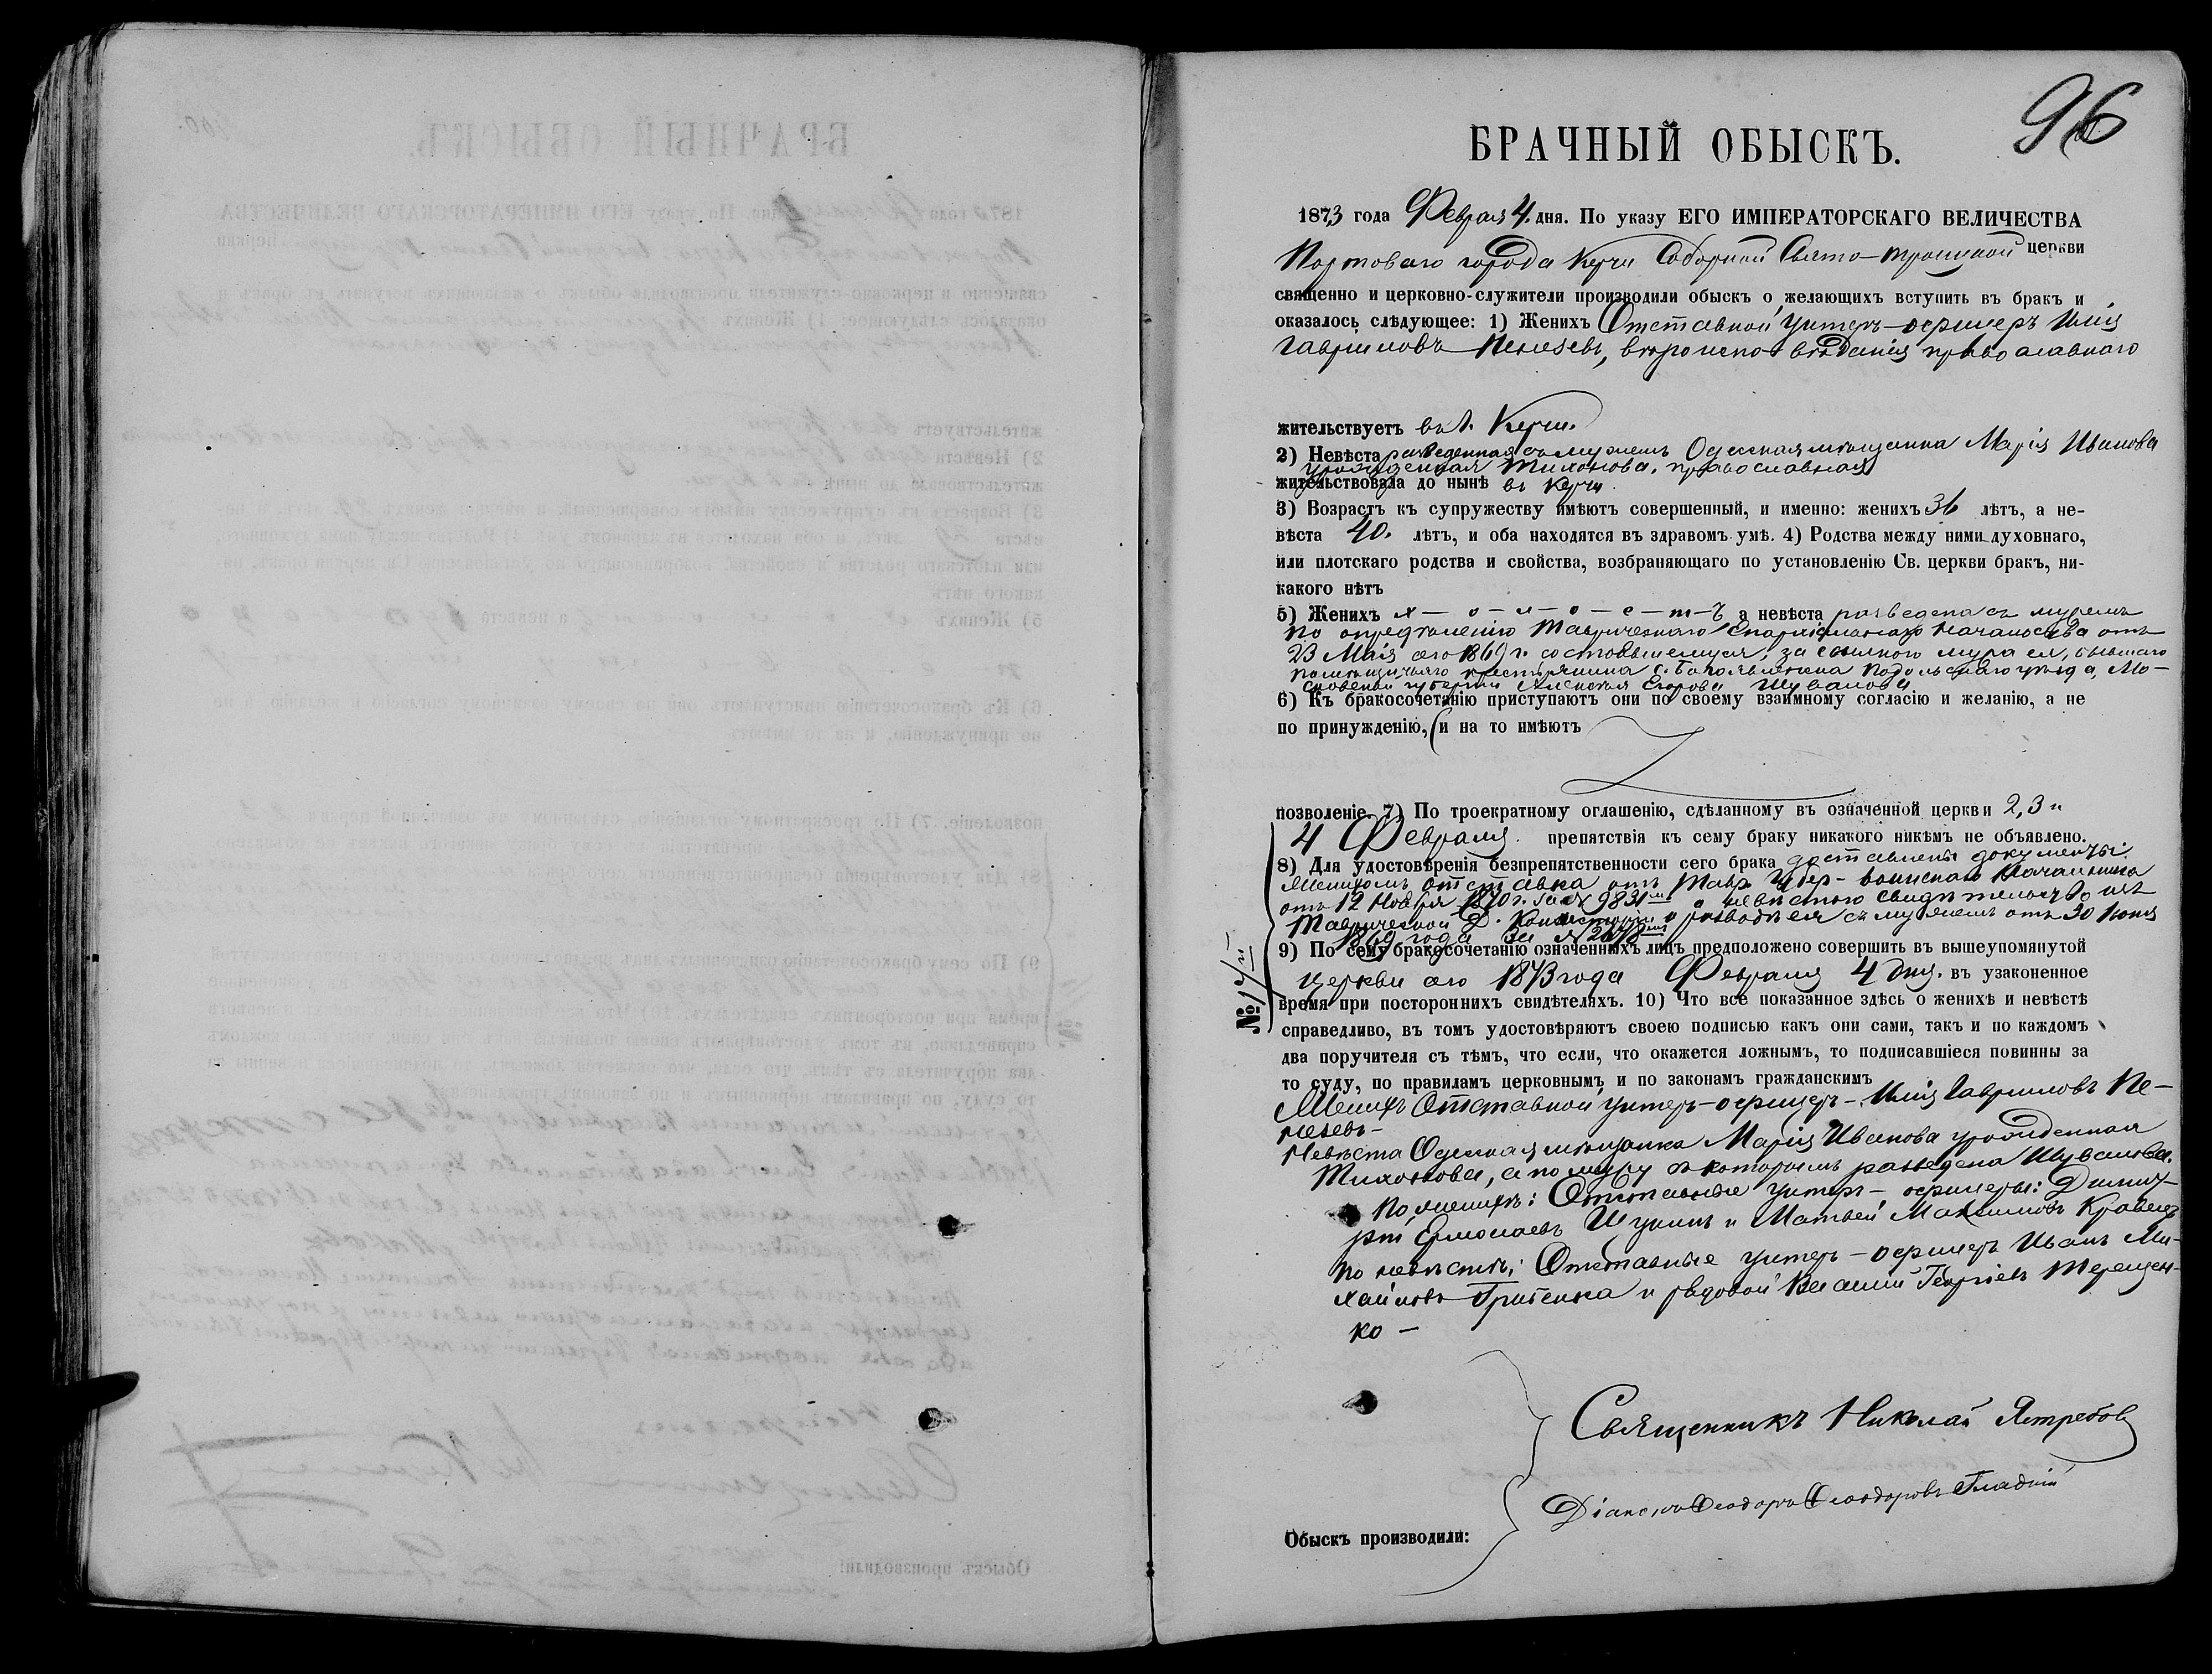 96
БРАЧНЫЙ ОБЫСКЪ.
1873 года Февраля 4. дня. По указу ЕГО ИМПЕРАТОРСКАГО ВЕЛИЧЕСТВА
Портоваго города Керчи Соборной Свято-Троицкой церкви
священно и церковно-служители производили обыскъ о желающихъ вступить въ бракъ и
оказалось слѣдующее: 1) Женихъ Отставной унтеръ-офицеръ Илія
Гавриловъ вѣроисповѣданія православнаго
жительствуетъ въ г. Керчи.
2) Невѣста разведенная съ мужемъ Одесская мѣщанка Марія Иванова
урожденная Тихонова, православная
жительствовала до нынѣ въ Керчи.
3) Возрастъ къ супружеству имѣютъ совершенный, и именно: женихъ 36 лѣтъ, а не-
вѣста 40. лѣтъ, и оба находятся въ здравомъ умѣ. 4) Родства между ними духовнаго,
или плотскаго родства и свойства, возбраняющаго по установленію Св. церкви бракъ, ни-
какого нѣтъ
5) Женихъ х—о—л—о—с—т—ъ а невѣста разведена съ мужемъ
по опредѣленію Таврическаго Епархіальнаго Начальства отъ
23 Мая сего 1869 г. состоявшемуся, за ссылкою мужа ея, бывшаго
помѣщичьяго крестьянина с. Богоявленска Подольскаго уѣзда, Мо-
сковской губерніи Алексѣя Егорова Шувалова
6) Къ бракосочетанію приступаютъ они по своему взаимному согласію и желанію, а не
по принужденію, (и на то имѣютъ
позволеніе. 7) По троекратному оглашенію, сдѣланному въ означенной церкви 2, 3 и
4 Февраля. препятствія къ сему браку никакого никѣмъ не объявлено.
8) Для удостовѣренія безпрепятственности сего брака доставлены документы:
Женихомъ отставка отъ Тавр. Губер- воинскаго Начальника
отъ 12 Ноября 1870 г. за № 9831 а невѣстою свидѣтельство изъ
Таврической Д. Консисторіи о разводѣ ея съ мужемъ отъ 30 Іюня
1869 года за №
№ 17
9) По сему бракосочетанію означенныхъ лицъ предположено совершить въ вышеупомянутой
церкви сего 1873 года Февраля 4 дня. въ узаконенное
время при постороннихъ свидѣтеляхъ. 10) Что все показанное здѣсь о женихѣ и невѣстѣ
справедливо, въ томъ удостовѣряютъ своею подписью какъ они сами, такъ и по каждомъ
два поручителя съ тѣмъ, что если, что окажется ложнымъ, то подписавшіеся повинны за
то суду, по правиламъ церковнымъ и по законамъ гражданскимъ
Женихъ Отставной унтеръ-офицеръ - Илія Гавриловъ
Невѣста Одесская мѣщанка Марія Иванова урожденная
Тихонова, а по мужу съ которымъ разведена Шувалова.
По женихѣ: Отставные унтеръ- офицеры: Димит-
рій Ермолаевъ и Матвей Максимовъ Кравецъ
По невѣстѣ: Отставные унтеръ-офицеръ Иванъ Ми-
хайловъ Гриценка и рядовой Василій Георгіевъ Терещен-
ко -
Священникъ Николай Ястребовъ
Діаконъ Ѳеодоръ Ѳеодоровъ Гладкій
Обыскъ производили: